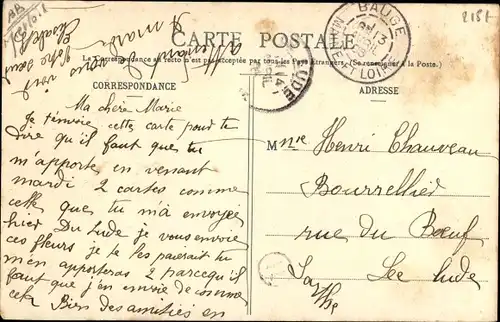 CARTE POSTALE
La Correspondance au recto n'est pas acceptée par tous les Pays Étrangers. (Se renseigner à la Poste.)
CORRESPONDANCE
ADRESSE
Ma chère Marie
Je t'envoie cette carte pour te
dire qu'il faut que tu
m'apporte en venant
mardi 2 cartes comme
celle que tu m'a envoyée
hier Du Lude je vous envoie
ces fleurs je te les paierait tu
m'en apporteras 2 parcequ'il
faut que j'en envoie de comme
cela Bien des amitiés en
attendant de
vous voir
Votre sœur
Mme Henri Chauveau
Bourrellier
rue du Bœuf
Le Lude
Sarthe
BAUGÉ
MAINE ET LOIRE
LUDE
2181